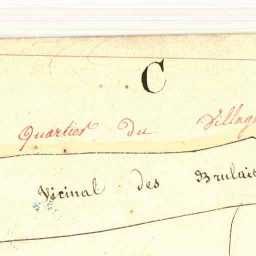 C
Quartier du Village
Vicinal des Brulais